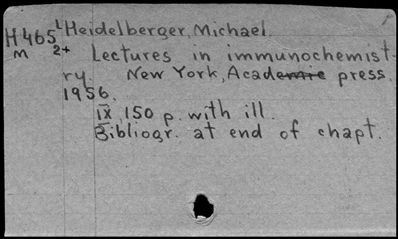 H465 1 Heidelberger, Michael.
m 2+ Lectures in immunochemist-
ry. New York, Academic press.
1956.
IX, 150 p. with ill.
Bibliogr. at end of chapt.